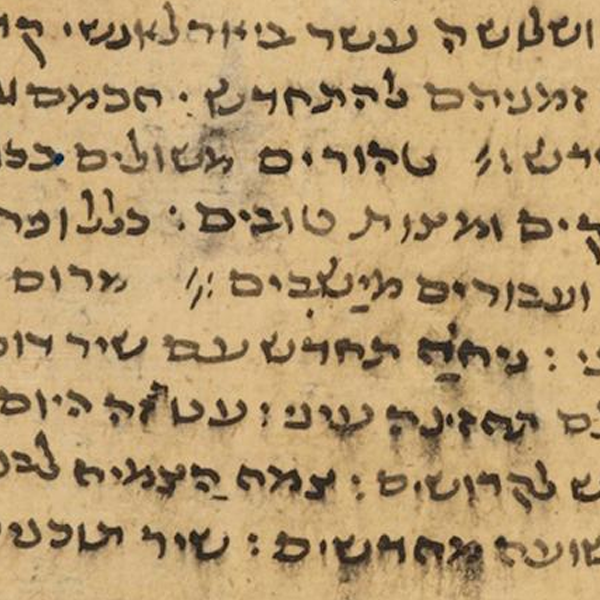 ושלושה עשר ביאר לאנשי
זמניהם להתחדש : חכמם
טהורים משולים
ומצות טובים : כללו
ועבורים מישבים // מרום
ניחח תחדש עם שיר
תחזינה עיני : עטה היום
לקדושים : צמח הצמיח
מחדשים : שיר תוכני